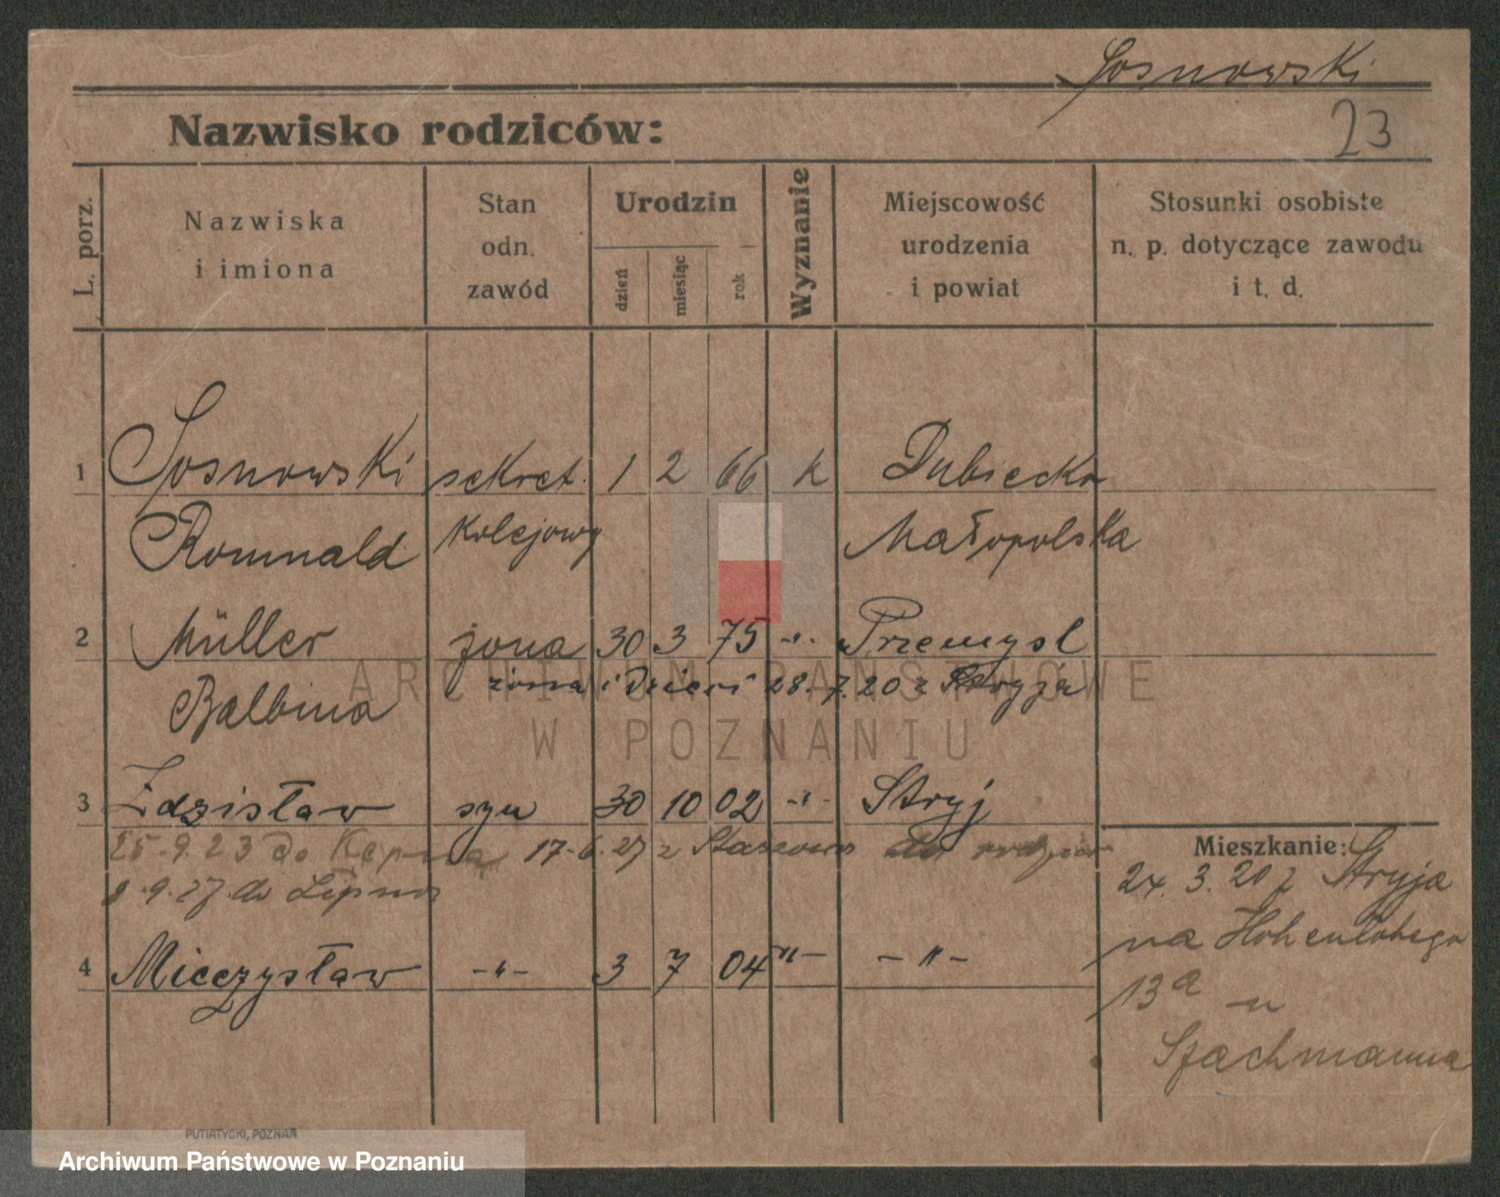 Sosnowski
23
Nazwisko rodziców:
L. porz.
Nazwiska
i imiona
Stan
odn.
zawód
Urodzin
dzień
miesiąc
rok
Wyznanie
Miejscowość
urodzenia
i powiat
Stosunki osobiste
n. p. dotyczące zawodu
i t. d.
1 Sosnowski sekret. 1 2 66 k Dubiecko
Romuald kolejowy Małopolska
2 Müller żona 30 3 75 -"- Przemysl
Balbina żona i dzieci 28.7.20 z Stryja
ARCHIWUM PAŃSTWOWE
W POZNANIU
3 Zdzisław syn 30 10 02 -"- Stryj
25.9.23 do Kępna 17.6.27 z do
9.9.27 do Lipna
4 Mieczysław -"- 3 7 04 -"- -"-
Mieszkanie:
24.3.20 z Stryja
na Hohenlohego
13a u
Szachmanna
PUTIATYCKI, POZNAŃ
Archiwum Państwowe w Poznaniu